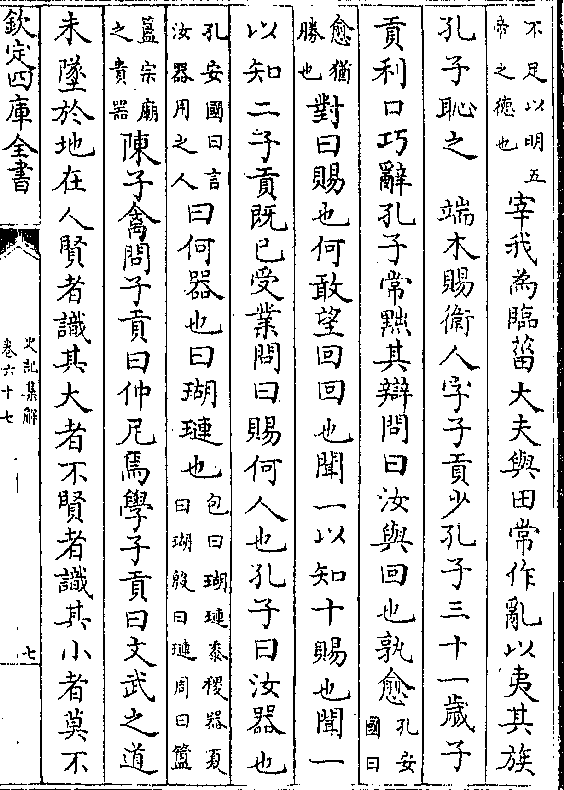 不足以明五
帝之德也
宰我為臨菑大夫與田常作亂以夷其族
孔子恥之　端木賜衛人字子貢少孔子三十一歲子
貢利口巧辭孔子常黜其辯問曰汝與回也孰愈
孔安
國曰
愈猶
勝也
對曰賜也何敢望回回也聞一以知十賜也聞一
以知二子貢既已受業問曰賜何人也孔子曰汝器也
孔安國曰言
汝器用之人
曰何器也曰瑚璉也
包曰瑚璉黍稷器夏
曰瑚殷曰璉周曰簠
簋宗廟
之貴器
陳子禽問子貢曰仲尼焉學子貢曰文武之道
未墜於地在人賢者識其大者不賢者識其小者莫不
欽定四庫全書
史記集解
卷六十七
七